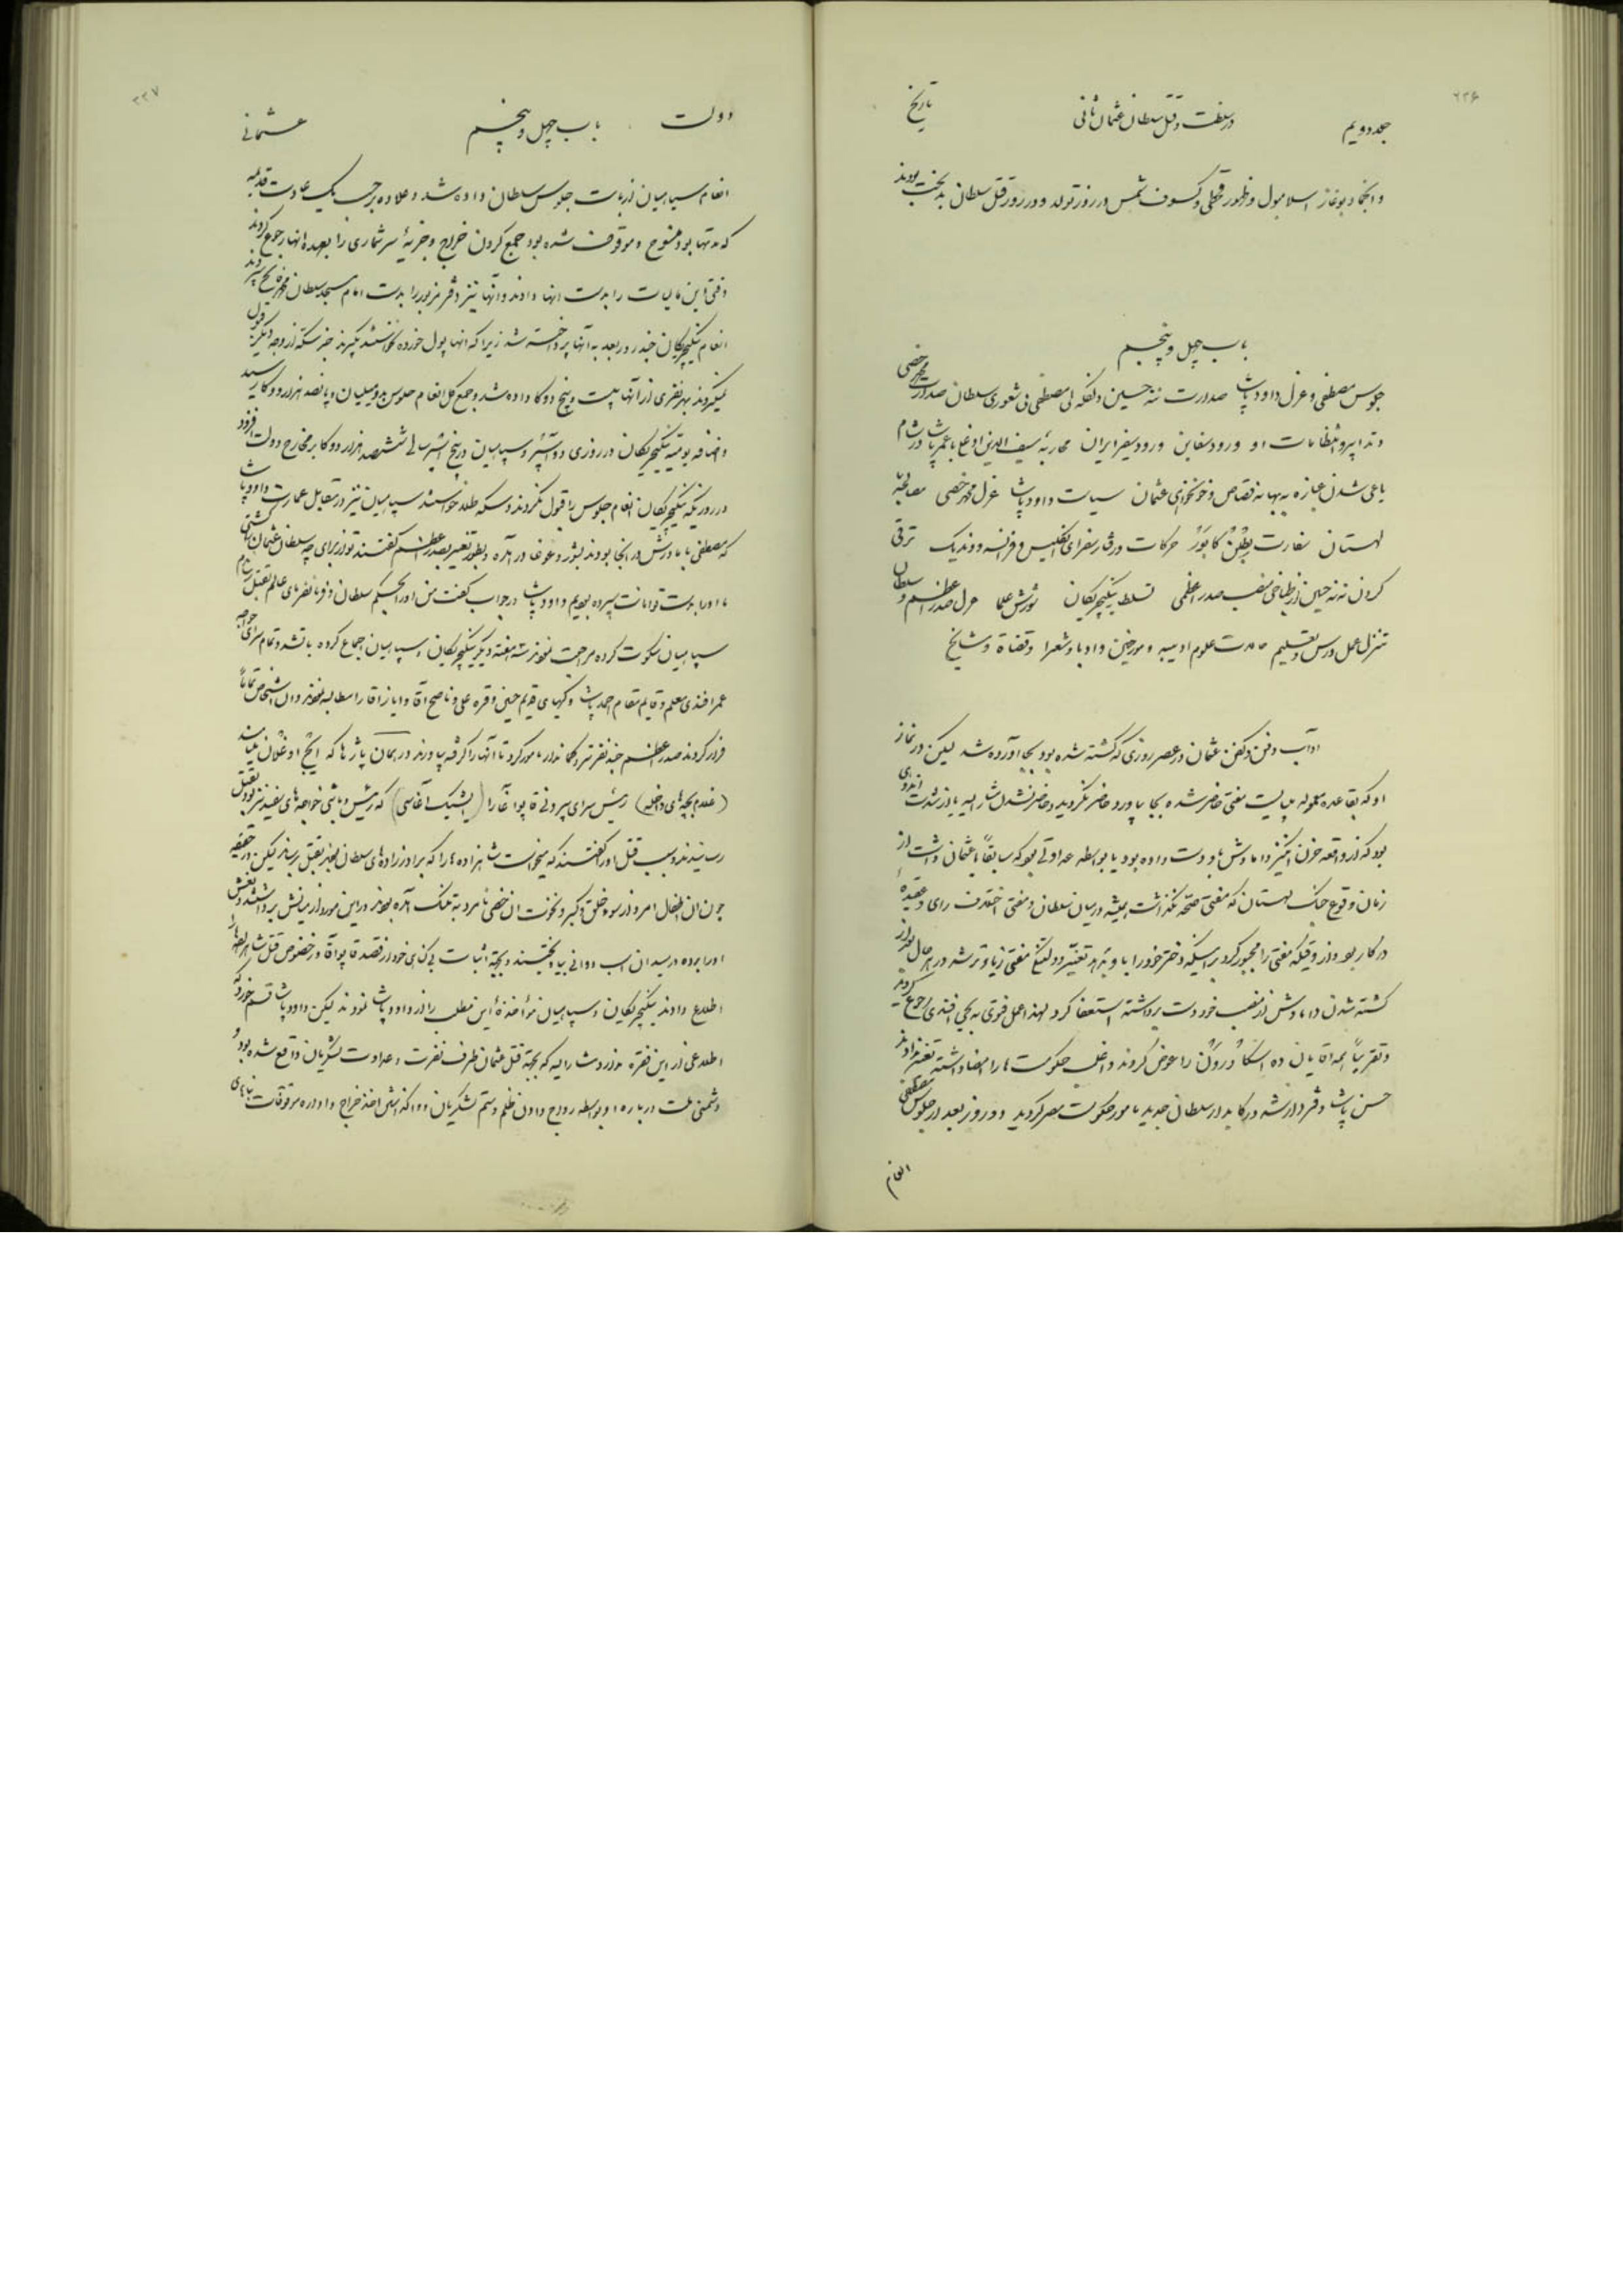 ۲۳۶
جلد دویم در سلطنت و قتل سلطان عثمان ثانی تاریخ
و انجماد بوغاز اسلامبول و ظهور قحطی و کسوف شمس در روز تولد و در روز قتل سلطان بدبخت بودند
باب چهل و پنجم
جلوس مصطفی و عزل داود پاشا صدارت ننه حسین و لفکه لی مصطفی بی شعوری سلطان صدارت
و تدابیر و انتظامات او ورود سفاین ورود سفیر ایران محاربه سیف الدین اوغلی با عمر پاشا در شام
یاغی شدن عبازه به بهانه قصاص و خونخواهی عثمان سیاست داود پاشا عزل محمد خصی مصالحه
لهستان سفارت حرکات و رفتار سفرای انگلیس و فرانسه و وندیک ترقی
کردن ننه حسین از طباخی بمنصب صدر اعظمی تسلط ینگیچریکان شورش علما عزل صدر اعظم و سلطان
تنزل عمل درس و تعلیم علوم ادبیه و مورخین و ادبا و شعرا و قضاة و مشایخ
آداب دفن و کفن عثمان در عصر روزی که کشته شده بود بجا آورده شد لیکن در نماز
او که بقاعده معموله میبایست مفتی حاضر شده بجا بیاورد حاضر نگردید و حاضر نشدن مشار الیه یا از شدت اندوهی
بود که از واقعه حزن انگیز دامادش باو دست داده بود یا بواسطه عداوتی بود که سابقاً با عثمان داشت از
زمان وقوع جنگ لهستان که مفتی صحه نگذاشت همیشه در میان سلطان و مفتی اختلاف رای و عقیدهٔ
در کار بود و از وقتیکه مفتی را مجبور کرد بر اینکه دختر خود را باو بدهد تغییر و دلتنگی مفتی زیادتر شد در هر حال بعد از
کشته شدن دامادش از منصب خود دست برداشته استعفا کرد لهذا عمل فتوی به یحیی افندی رجوع گردید
و تقریباً همه آقایان ده را عوض کردند و اغلب حکومت ها را امضا داشته تغییر ندادند
حسن پاشا دفتردار شد سلطان جدید مامور حکومت مصر گردید و دو روز بعد از جلوس مصطفی
انعام
۲۳۷
دولت باب چهل و پنجم عثمانی
انعام سپاهیان از بابت جلوس سلطان داده شد و علاوه بر حسب یک عادت قدیمه
که مدتها بود منسوخ و موقوف شده بود جمع کردن خراج و جزیهٔ سرشماری را بعهده آنها رجوع کردند
دفتر این مالیات را بدست آنها دادند و آنها نیز دفتر مزبور را بدست امام مسجد سلطان محمد فاتح سپردند
انعام ینگیچریکان چند روز بعد به آنها پرداخته شد زیرا که آنها پول خورده نخواستند بگیرند جز سکه از وجه دیگر قبول
نمیکردند بهر نفری از آنها بیست و پنج دوکا داده شد و جمع کل انعام جلوس بدو میلیان و پانصد هزار دوکا رسید
و اضافه یومیه ینگیچریکان در روزی دو آسپر و سپاهیان در پنج آسپر سالی ششصد هزار دوکا بر مخارج دولت افزود
در روزیکه ینگیچریکان انعام جلوس را قبول نکردند و سکه طلا خواستند سپاهیان نیز در مقابل عمارت داود پاشا
که مصطفی با مادرش در آنجا بودند بشور و غوغا در آمده و بطور تغییر بصدر اعظم گفتند تو از برای چه سلطان عثمان را کشتی
ما او را بدست تو امانت سپرده بودیم داود پاشا در جواب گفت من او را بحکم سلطان و فرمانفرمای عالم بقتل رساندم
سپاهیان سکوت کرده مراجعت نمودند سه هفته دیگر ینگیچریکان و سپاهیان اجماع کرده
عمر افندی معلم و قایم مقام احمد پاشا و کهیای قدیم حسین و قره علی و ناصح آقا و ایاز آقا را مطالبه نمودند و آن اشخاص تماماً
فرار کردند صدر اعظم چند نفر ترد کماندار مامور کرد تا آنها را گرفته بیاورند در همان پاژ ها که ایچ اوغلان میباشند
(غلام بچه های داخله) رئیس سرای بیرونی قاپو آغا را (ایشیک آغاسی) که رئیس و باشی خواجه های سفید نیز بود بقتل
رسانیدند و سبب قتل او را گفتند که میخواست شاهزاده ها را که برادر زاده های سلطان بودند بقتل برساند لیکن در حقیقه
چون آن اطفال امرد از سوء خلق و کبر و نخوت آن خصی نامرد به تنگ آمده بودند در این مورد از میانش برداشتند و نعش
او را برده در میدان اسب دوانی بیاویختند و بجهة اثبات بی گناهی خود از قصد قاپو آقا در خصوص قتل شاهزاده ها
اطلاع دادند ینگیچریکان و سپاهیان مؤاخذهٔ این مطلب را از داود پاشا نمودند لیکن داود پاشا قسم خورد که
اطلاعی از این فقره ندارد مشار الیه که بجهة قتل عثمان طرف نفرت و عداوت لشکریان واقع شده بود و
دشمنی ملت درباره او بواسطه رواج دادن ظلم و ستم لشکریان و واگذاشتن اخذ خراج و اداره موقوفات